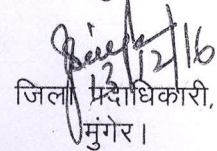 12/12/16
जिला पदाधिकारी,
मुंगेर।